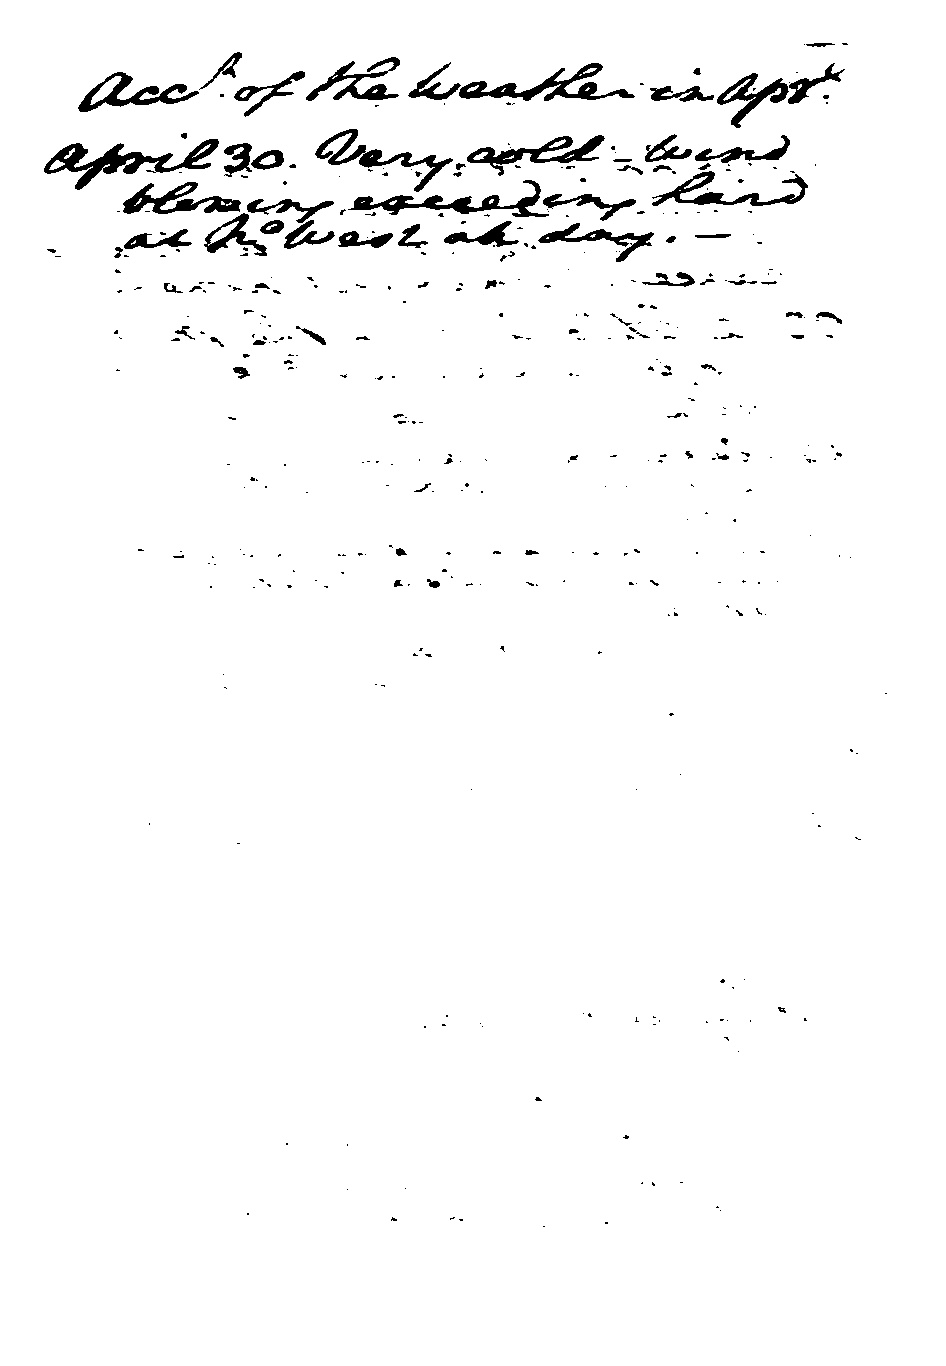 Acct. of the Weather in Aprl.
April 30. Very cold - wind
blowing exceeding hard
at No West all day. —